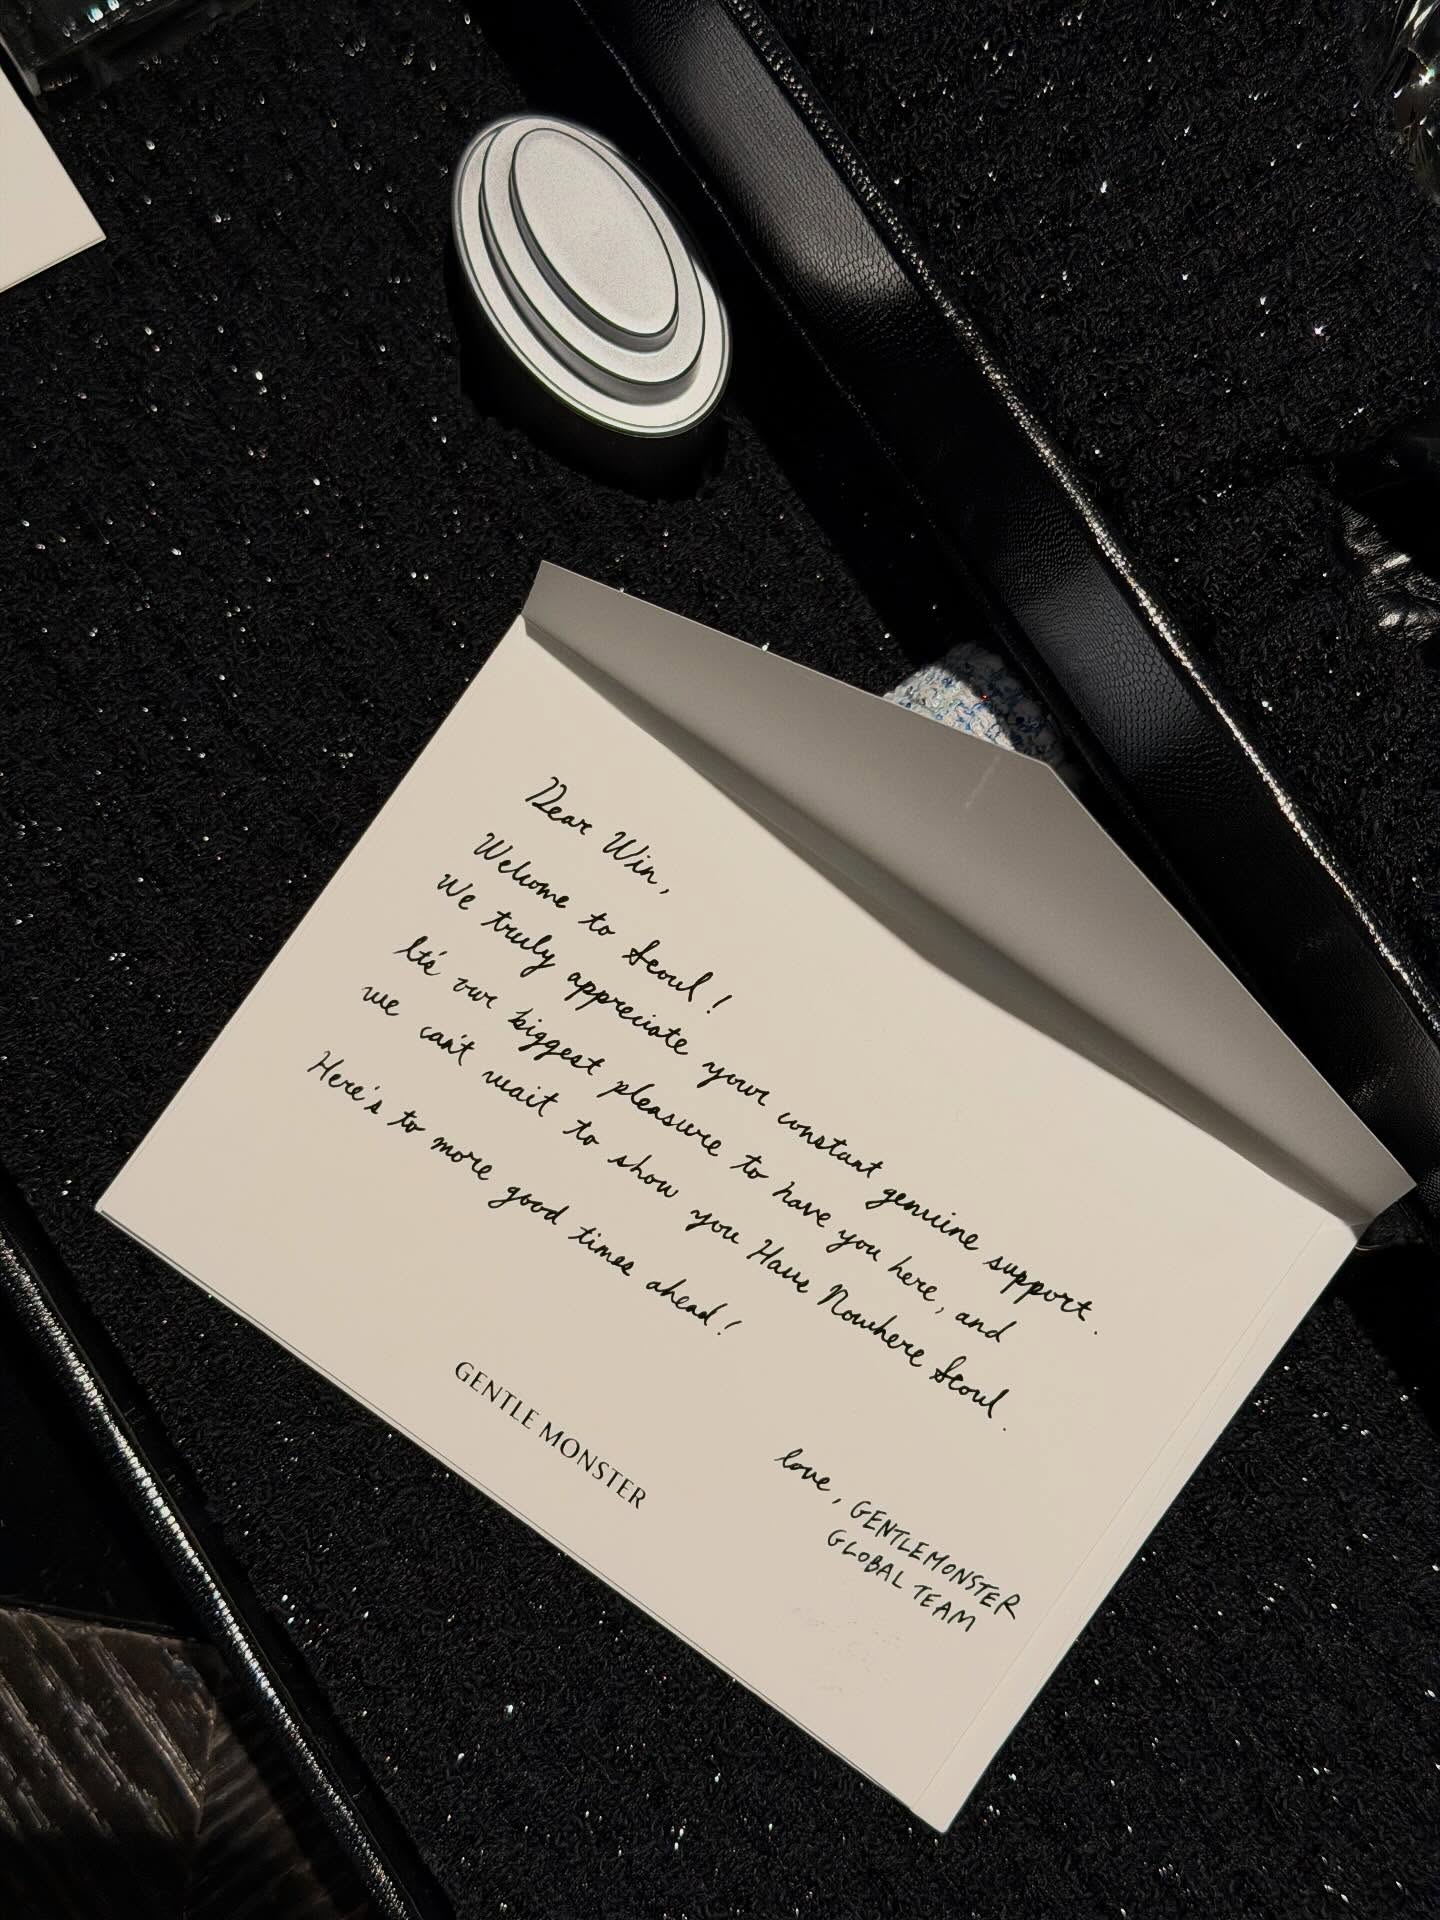 Dear Win,
Welcome to Seoul!
We truly appreciate your constant genuine support.
It's our biggest pleasure to have you here, and
we can't wait to show you Haus Nowhere Seoul.
Here's to more good times ahead!
GENTLE MONSTER
love, GENTLEMONSTER
GLOBAL TEAM